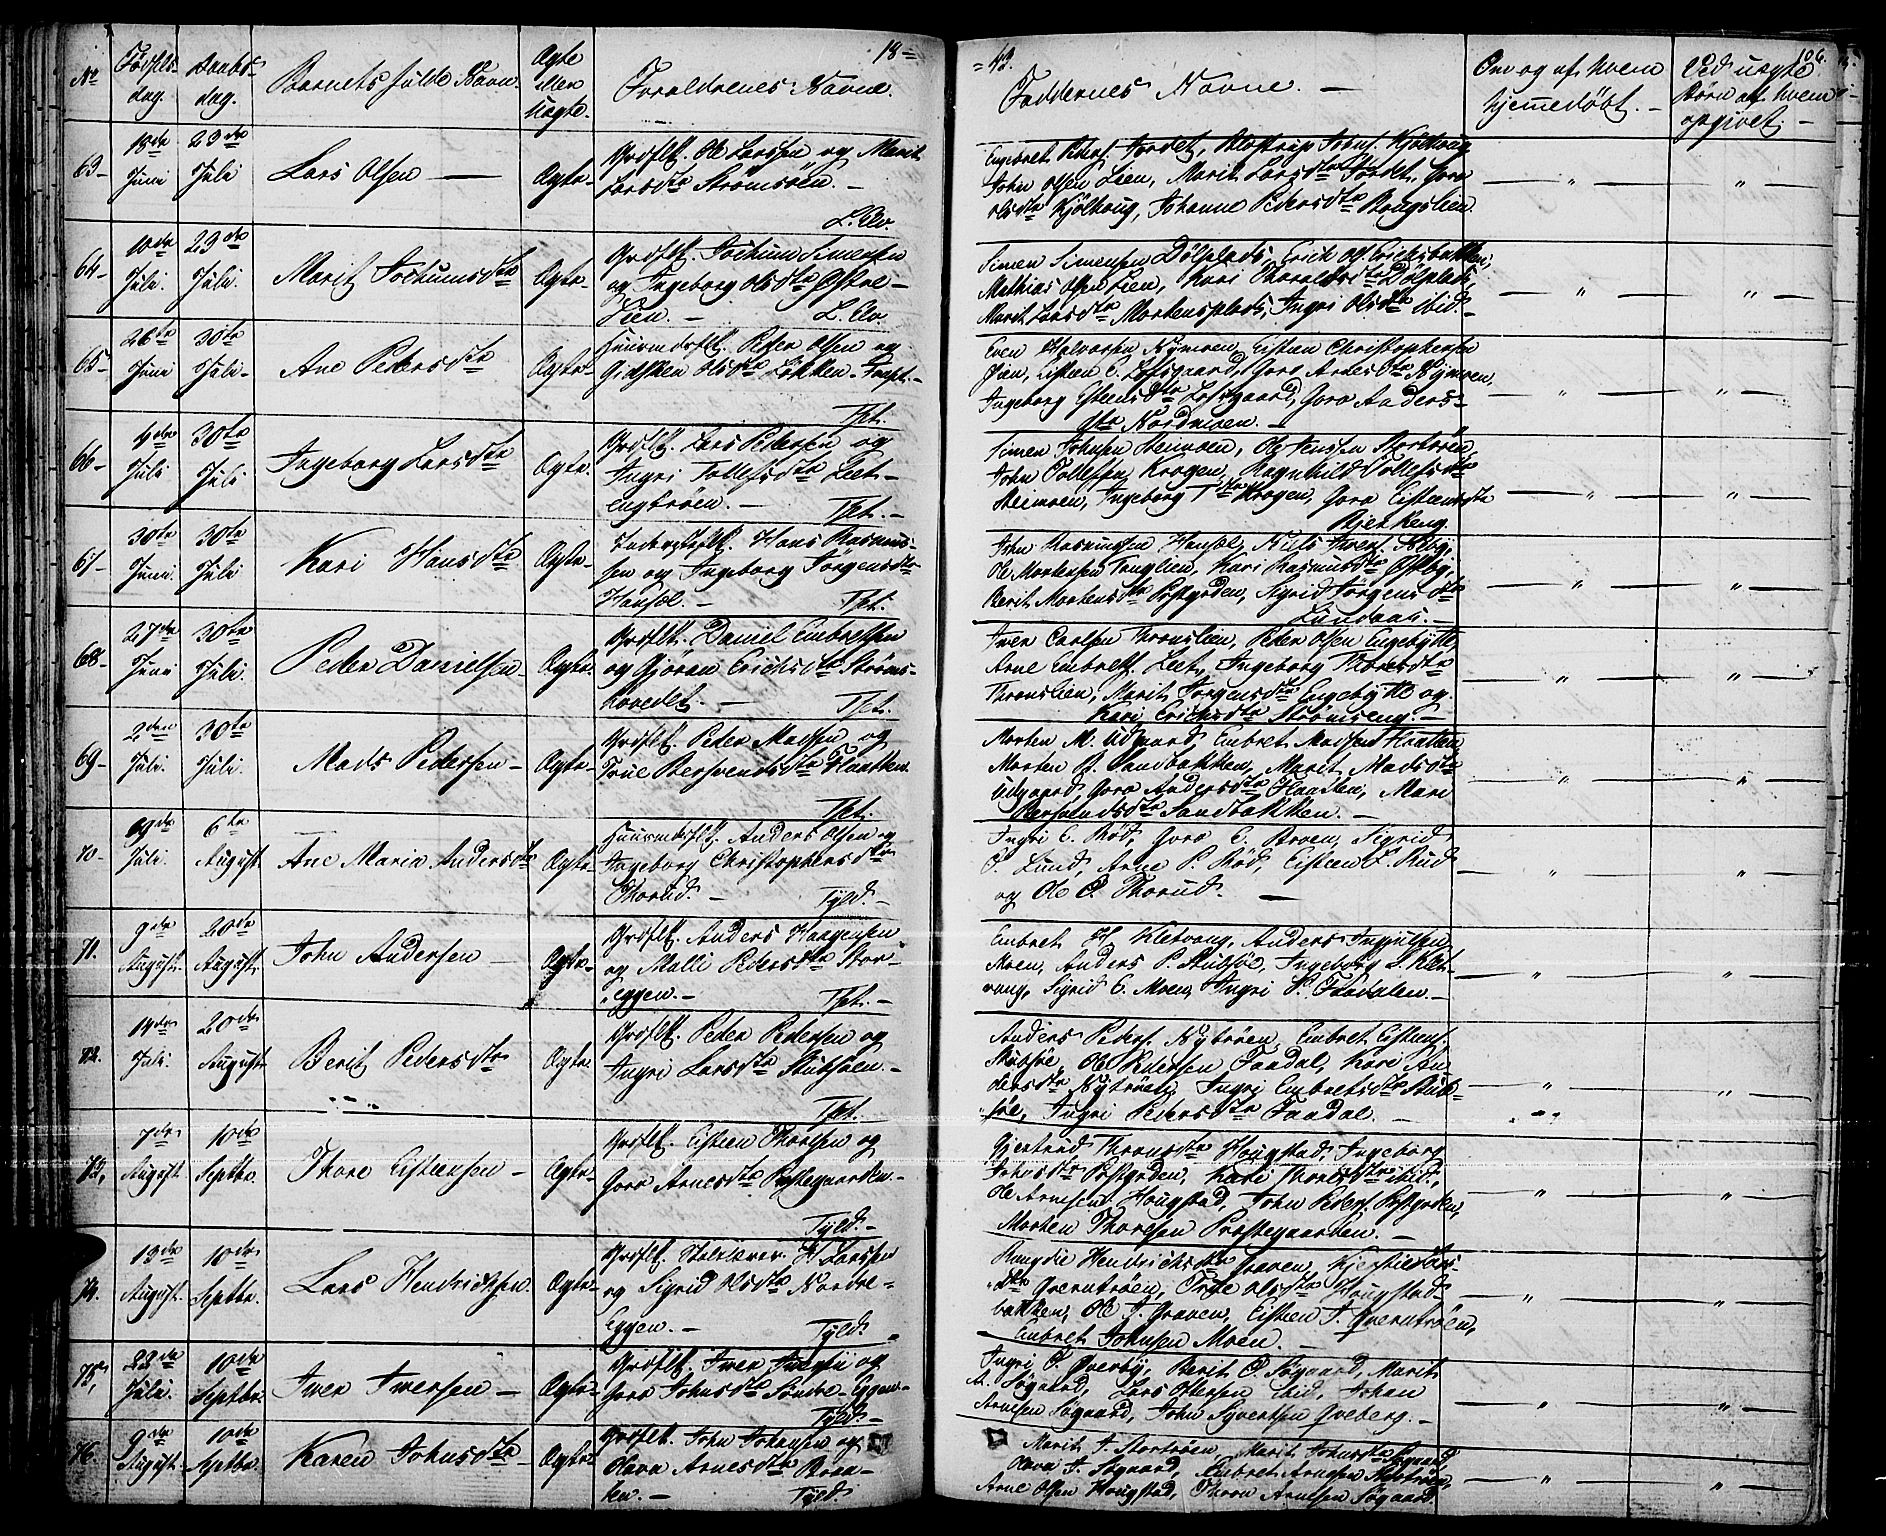 18=
=42.
106.
No
Fødsels-
dag.
Daabs-
dag.
Barnets fulde Navn.
Ægte
eller
Uægte.
Forældrenes Navne.
Faddernes Navne. —
Om og af hvem
hjemmedøbt. —
Ved uægte
Børn af hvem
opgivet. —
63-
18de
Juni
23de
Juli
Lars Olsen —
Ægte-
Grdflk. Ole Larssen og Marit
Larsdtr Strømsøen. —
L.Elv.
John Olsen Lien, Marit Larsdtr Jordet, Goro
Olsdtr Kjøltoug, Johanne Pedersdtr Bougslien.
64-
10de
Juli.
23de
Juli.
Marit Jochumsdtr
Ægte-
Grdflk. Jochum Simensen
og Ingeborg Olsdtr Østre-
Lien. —
L.Elv.
Simen Simensen Dølplads, Erich Ol. Erichsbakken,
Mathias Olsen Lien, Kari Thoraldsdtr Dølplads,
Marit Larsdtr Mortensplads, Ingri Olsdtr ibid.
65-
26te
Juni
30te
Juli-
Ane Pedersdtr
Ægte-
Huusmdsflk. Peder Olsen og
Gidsken Olsdtr Løkken-
Tpt.
Even Halvorsen Nymoen, Eistien Christophersen
Øien, Eistien E. Lofsgaard, Goro Arnesdtr Nymoen,
Ingeborg Estensdtr Lofsgaard, Goro Anders-
dtr Nordmoen. —
66-
4de
Juli
30te
Juli
Ingeborg Larsdtr
Ægte.
Grdflk. Lars Pedersen og
Ingri Tollefsdtr Leet-
engtrøen. —
Tpt. —
Simen Johnsen Heimoen, Ole Jenssen Stortrøen,
John Tollefsen Krogen, Ragnhild Tollefsdtr
Heimoen, Ingeborg T.dtr Krogen, Goro Eistensdtr
67-
30te
Juni.
30te
Juli
Kari Hansdtr
Ægte-
Hans Rasmus-
sen og Ingeborg Jørgensdtr
Hansæl. —
Tpt.
John Rasmussen Hansæl, Nils Iversen
Ole Mortensen Trøglien, Kari Rasmusdtr Østby,
Berit Mortensdtr Præstgrden, Sigrid Jørgensdtr
68-
27de
Juni
30te
Juli
Peder Danielsen
Ægte.
Grdflk. Daniel Embretsen
og Gjøren Erichsdtr Strøms-
hovedet. —
Tpt.
Iver Carlsen Thronslien, Peder Olsen Engebytte,
Arne Embrets. Leet, Ingeborg Thoresdtr
Thronslien, Marit Jørgensdtr Engebytte og
Kari Erichsdtr Strømseng. —
69-
2den
Juli.
30te
Juli.
Mads Pedersen —
Ægte-
Grdflk. Peder Madsen og
True Bersvendsdtr Flaatten
Tpt. —
Morten M. Udgaard, Embret Madsen Flaatten,
Morten B. Sandbakken, Marit Madsdtr
Udgaard, Goro Andersdtr Flaatten, Mari
Bersvendsdtr Sandbakken. —
70-
29de
Juli.
6te
August
Ane Maria Andersdtr
Ægte-
Huusmdsflk. Anders Olsen og
Ingeborg Christophersdtr
Thorud. —
Tyld. —
Ingri E. Rød, Goro E. Broen, Sigrid
O. Lund, Arne P. Rød, Eistien L. Rud
og Ole O. Thorud. —
71.
9de
August
20de
August
John Andersen —
Ægte-
Grdflk. Anders Haagensen
og Malli Pedersdtr Stor-
eggen. —
Tpt. —
Embret H. Kletvang, Anders Ingulsen
Moen, Anders P. Stubsøe, Ingeborg L. Klet-
vang, Sigrid E. Moen, Ingri P. Faadalen. —
72.
14de
Juli.
20de
August
Berit Pedersdtr
Ægte.
Grdflk. Peder Pedersen og
Ingri Larsdtr Stubsøen. —
Tpt.
Anders Peders. Nytrøen, Embret Eistens.
Stubsøe, Ole Pedersen Faadal, Kari An-
dersdtr Nytrøen, Ingri Embretsdtr Stub-
søe, Ingri Pedersdtr Faadal. —
73,
7de
August
10de
Septbr.
Thore Eistensen —
Ægte-
Grdflk. Eistien Thoresen og
Goro Arnesdtr Præstegaarden. —
Tyld. —
Gjertrud Thronsdtr Hougstad, Ingeborg
Johnsdtr Præstgrden, Kari Thoresdtr ibid.,
Ole Arnesen Hougstad, John Peders. Præstgrden,
Morten Thoresen Præstegaarden. —
74.
13de
August
10de
Septbr.
Lars Hendrichsen.
Ægte-
Grdflk. H. Larssen
og Sigrid Olsdtr Nordre-
Eggen. —
Tyld.
Rangdie Hendrichsdtr Graven, Kjersti
dtr Qverntrøen, Trye Olsdtr Hougstad-
bakken, Ole J. Graven, Eistien J. Qverntrøen,
Embret Johnsen Moen. —
75,
22de
Juli.
10de
Septbr
Iver Iversen —
Ægte-
Grdflk. Iver Iversen og
Goro Johnsdtr Søndre-Eggen. —
Tyld. —
Ingri O. Qverby, Berit O. Søgaard, Marit
A. Søgaard, Lars Olsen ibid, Johan
Arnesen Søgaard, John Syvertsen Qveberg. —
76.
9de
August
10de
Septbr.
Karen Johnsdtr
Ægte-
Grdflk. John Johnsen og
Olava Arnesdtr Broe-
ken. —
Tyld.
Marit J. Stortrøen, Marit Johnsdtr Søgaard,
Olava A. Søgaard, Embret Arnesen Stortrøen,
Arne Olsen Hougstad, Thore Arnesen Søgaard.